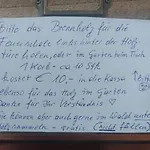 Bitte das Brennholz für die
Feuerschale links unter der Holz-
türe holen, oder im Garten beim Tisch
1 Korb - ca 10 Stk.
kostet € 10,- in die Kassa
ebenso für das Holz im Garten
Danke für Ihr Verständnis ♡
Sie können aber auch gerne im Wald unten
Holz sammeln - gratis (nicht fällen)